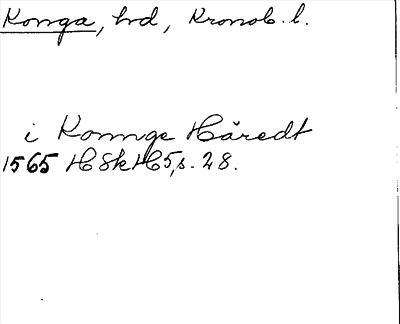 Konga, hd, Kronob. l.
i Konnge Häredt
1565 HSkH5, s. 28.